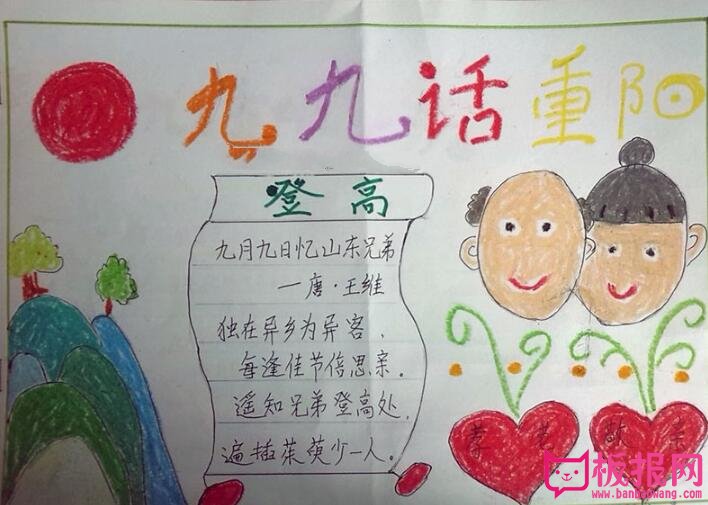 九九话重阳
登高
九月九日忆山东兄弟
—唐·王维
独在异乡为异客，
每逢佳节倍思亲。
遥知兄弟登高处，
遍插茱萸少一人。
孝 老
敬 亲
板报网
www.banbaowang.com